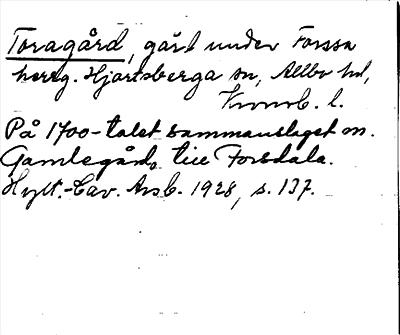 Toragård, gård under Forssa
herrg. Hjortsberga sn, Allbo hd,
Kronob. l.
På 1700-talet sammanslaget m.
Gamlegård till Forsdala.
Hylt.-Cav. Årsb. 1928, s. 137.